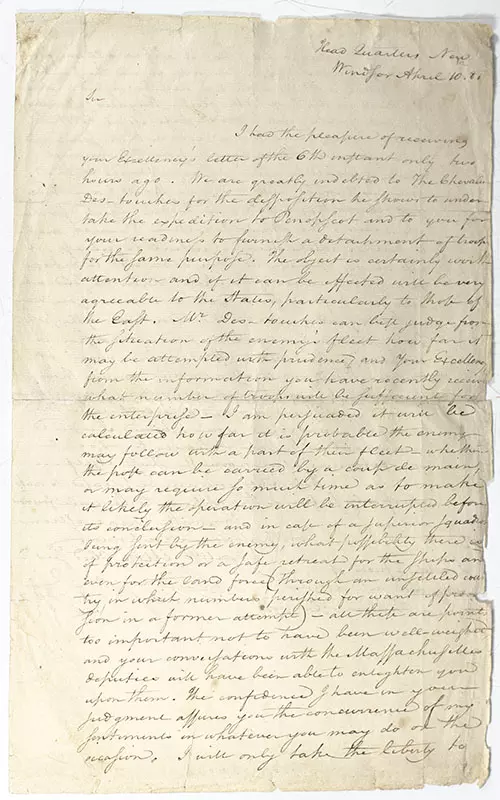 Head Quarters New
Windsor April 10. 81
Sir
I had the pleasure of receiving
your Excellency's letter of the 6th instant only two
hours ago. We are greatly indebted to The Chevalier
Des-touches for the disposition he shows to under
take the expedition to Penopscot and to you for
your readiness to furnish a detachment of troops
for the same purpose. The object is certainly worth
attention and if it can be effected will be very
agreeable to the States, particularly to those of
the East. Mr. Des-touches can best judge from
the situation of the enemy's fleet how far it
may be attempted with prudence, and Your Excellency
from the information you have recently receiv
what number of troops will be sufficient for
the enterprise – I am persuaded it will be
calculated how far it is probable the enemy
may follow with a part of their fleet – whether
the post can be carried by a coup de main,
or may require so much time as to make
it likely the operation will be interrupted before
its conclusion – and in case of a superior squadr
being sent by the enemy, what possibility there is
of protection or a safe retreat for the ships and
even for the land force (through an unsettled coun
try in which numbers perished for want of provi
sion in a former attempt) – all these are points
too important not to have been well-weighed
and your conversations with the Massachusettes
deputies will have been able to enlighten you
upon them. The confidence I have in your
judgment assures you the concurrence of my
sentiments in whatever you may do on the
occasion. I will only take the liberty to